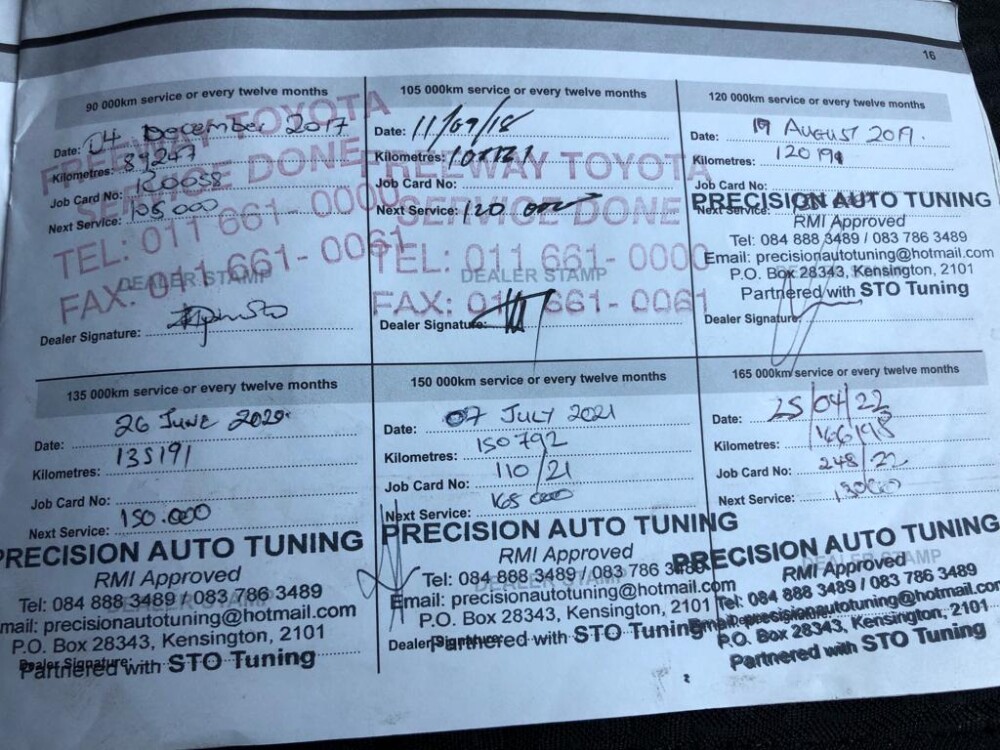 16
90 000km service or every twelve months
Date: 04 December 2017
Kilometres: 89247
Job Card No:
Next Service: 105 000
FREEWAY TOYOTA
SERVICE DONE
TEL: 011 661-0000
FAX: 011 661-0061
DEALER STAMP
Dealer Signature:
105 000km service or every twelve months
Date: 11/09/18
Kilometres:
Job Card No:
Next Service: 120 000
FREEWAY TOYOTA
SERVICE DONE
TEL: 011 661-0000
FAX: 011 661-0061
DEALER STAMP
Dealer Signature:
120 000km service or every twelve months
Date: 19 August 2019.
Kilometres:
Job Card No:
Next Service:
PRECISION AUTO TUNING
RMI Approved
Tel: 084 888 3489 / 083 786 3489
Email: precisionautotuning@hotmail.com
P.O. Box 28343, Kensington, 2101
Partnered with STO Tuning
Dealer Signature:
135 000km service or every twelve months
Date: 26 June 2020
Kilometres: 135191
Job Card No:
Next Service: 150.000
PRECISION AUTO TUNING
RMI Approved
Tel: 084 888 3489 / 083 786 3489
mail: precisionautotuning@hotmail.com
P.O. Box 28343, Kensington, 2101
Dealer Signature:
Partnered with STO Tuning
150 000km service or every twelve months
Date: 07 July 2021
Kilometres: 150792
Job Card No: 110/21
Next Service: 165 000
PRECISION AUTO TUNING
RMI Approved
Tel: 084 888 3489 / 083 786 3489
DEALER STAMP
Email: precisionautotuning@hotmail.com
P.O. Box 28343, Kensington, 2101
Dealer Signature:
Partnered with STO Tuning
165 000km service or every twelve months
Date: 25/04/22
Kilometres: 166198
Job Card No: 248/22
Next Service:
PRECISION AUTO TUNING
DEALER STAMP
RMI Approved
Tel: 084 888 3489 / 083 786 3489
Email: precisionautotuning@hotmail.com
P.O. Box 28343, Kensington, 2101
Partnered with STO Tuning